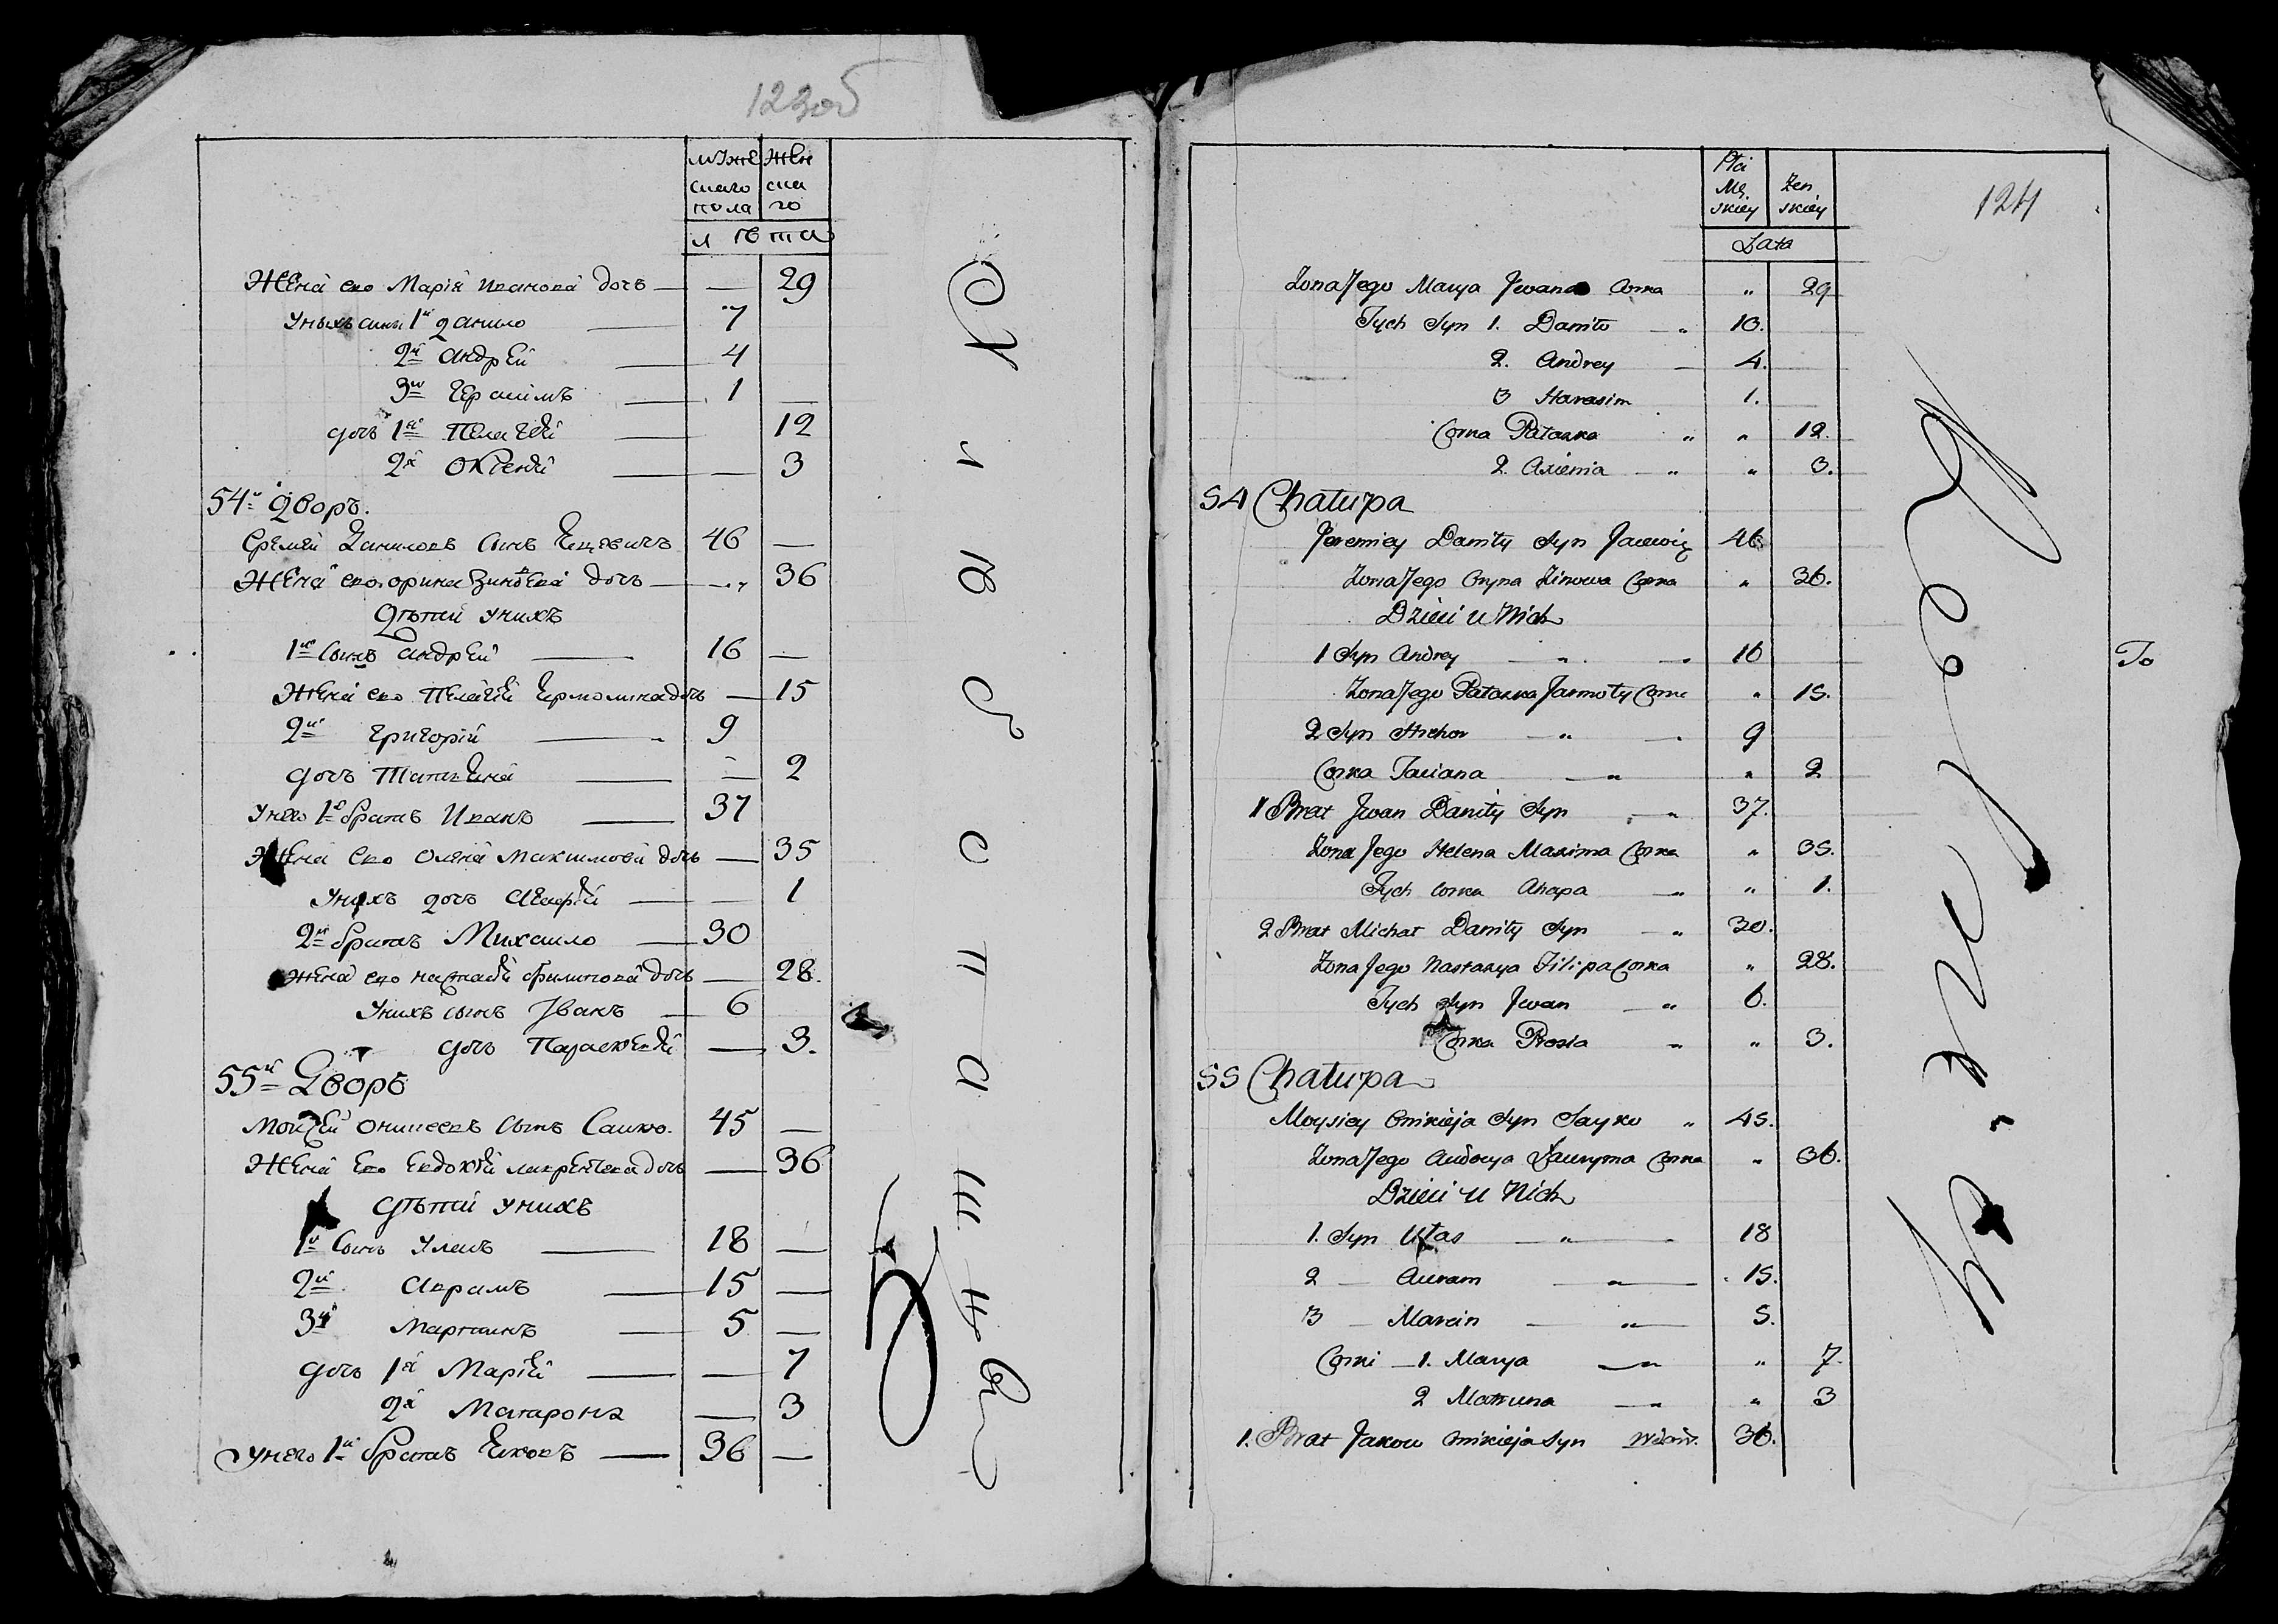 123об
мужескаго пола
женскаго
лѣта
Жена его Марія Иванова дочь — — 29
У ныхъ сыны 1й Данило — 7
2й Андрей — 4
3й Герасимъ — 1 —
дочь 1я Пелагея — 12
2я Оксения — — 3
54й Дворъ.
Еремей Даниловъ сынъ Яцевичъ 46 —
Жена его Орина Зинѣева дочь — — 36
Дѣти у нихъ
1й сынъ Андрей — 16 —
Жена его Пелагея Ермолина дочь — 15
2й Григорій — 9
дочь Татияна — — 2
У него 1й братъ Иванъ — 37
Жена его Олена Максимова дочь — 35
У нихъ дочь — — 1
2й братъ Михайло — 30
Жена его Настася Филипова дочь — 28.
У нихъ сынъ Іванъ — 6
дочь Параскевия — 3.
55й Дворъ
Мойсей Оникеевъ сынъ Сайко. 45 —
Жена его Евдокия Лаврентева дочь — 36
Дѣти у нихъ
1й сынъ Уласъ — 18 —
2й Аврамъ — 15 —
3й Мартинъ — 5 —
дочь 1я Мария — — 7
2я Матарона — 3
У него 1й братъ Яковъ — 36 —
124
Płci Męskiey
Żenskiey
Lata
Zona Jego Marya Jwana Corka " 29
Tych Syn 1. Daniło — " 10.
2. Andrey — 4.
3 Harasim 1.
Corka Patazka " " 12.
2. Axienia — " " 3.
54 Chałupa
Jeremiey Daniły Syn Jacewicz 46
Zona Jego Oryna Zinowa Corka " 36.
Dzieci u Nich
1 Syn Andrey — " — 16
Zona Jego Patazka Jarmoły Corka " 15.
2 Syn Hrehor — " — 9
Corka Taciana — " " 2
1 Brat Jwan Daniły Syn — " 37.
Zona Jego Helena Maxima Corka " 35.
Tych Corka Ahapa — " " 1.
2 Brat Michał Daniły Syn — " 30.
Zona Jego Nastazya Filipa Corka " 28.
Tych Syn Jwan — " 6.
Corka Prosia — " " 3.
55 Chałupa
Moysiey Onikieja Syn Sayko " 45.
Zona Jego Audocya Ławryna Corka " 36.
Dzieci u Nich
1. Syn Ułas — " — 18
2 — Auram — " — 15.
3 — Marcin — " — 5.
Corki — 1. Marya — " " 7.
2 Matruna — " " 3
1. Brat Jakow Onikieja Syn Wdow. 36.
To